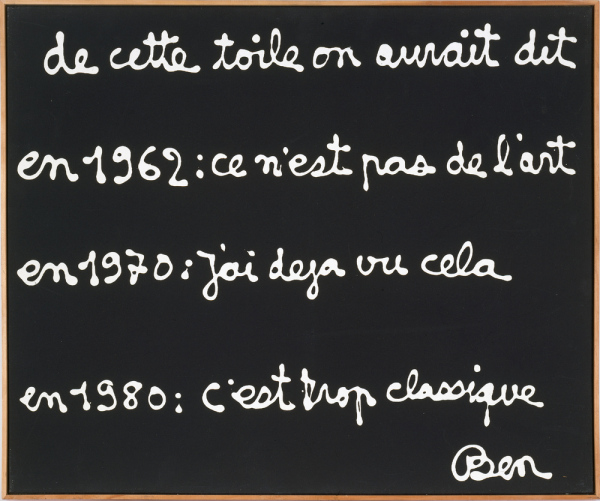 de cette toile on aurait dit
en 1962 : ce n'est pas de l'art
en 1970 : j'ai deja vu cela
en 1980 : c'est trop classique
Ben